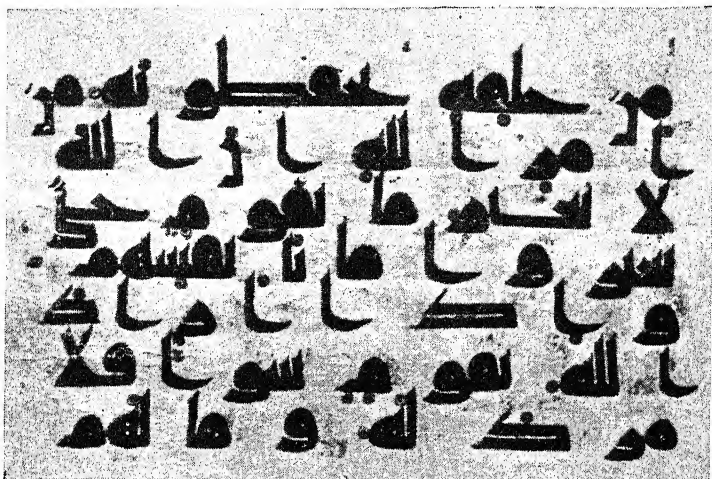 من خلفه يحفظونه من
امر الله ان الله
لا يغير ما بقوم حتى
يغيروا ما بانفسهم
واذا اراد
الله بقوم سوا فلا
مرد له وما لهم